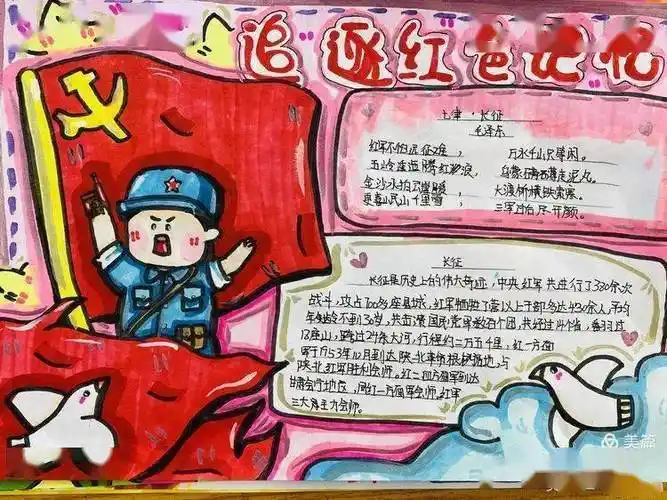 追逐红色记忆
七律·长征
毛泽东
红军不怕远征难， 万水千山只等闲。
五岭逶迤腾细浪， 乌蒙磅礴走泥丸。
金沙水拍云崖暖， 大渡桥横铁索寒。
更喜岷山千里雪， 三军过后尽开颜。
长征
长征是历史上的伟大奇迹，中央红军共进行了380余次
战斗，攻占700多座县城，红军牺牲了营以上干部多达430余人，平均
年龄不到30岁，共击溃国民党军数百个团，共经过14个省，翻越过
18座山，跨过24条大河，行程约二万五千里，红一方面
军于1953年10月到达陕北革命根据地，与
陕北红军胜利会师。红二四方面军到达
甘肃会宁地区，同红一方面军会师。红军
三大主力会师。
美篇